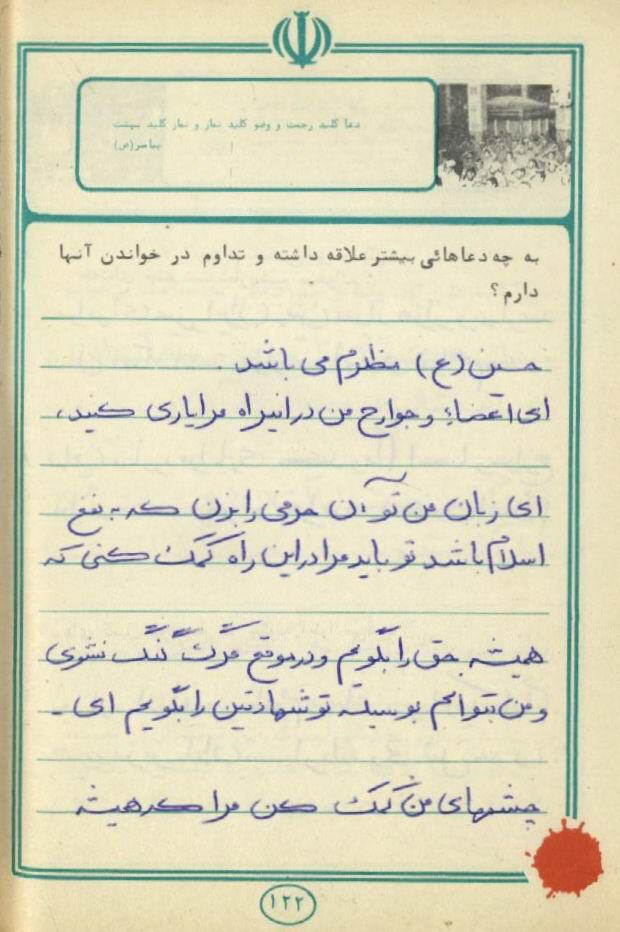 دعا کلید رحمت و وضو کلید نماز و نماز کلید بهشت
پیامبر(ص)
به چه دعاهائی بیشتر علاقه داشته و تداوم در خواندن آنها
دارم؟
حسین (ع) مظلوم می باشد.
ای اعضاء و جوارح من در این راه مرا یاری کنید،
ای زبان من تو آن حرفی را بزن که به نفع
اسلام باشد تو باید مرا در این راه کمک کنی که
همیشه حق را بگویم و در موقع مرگ گنگ نشوی
و من بتوانم بوسیله تو شهادتین را بگویم ای -
چشمهای من کمک کن مرا که همیشه
۱۲۲